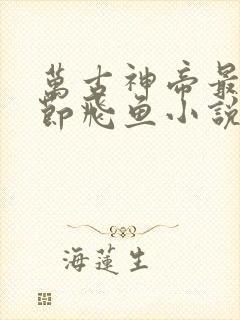 萬古神帝最
節飛魚小說
海蓮生